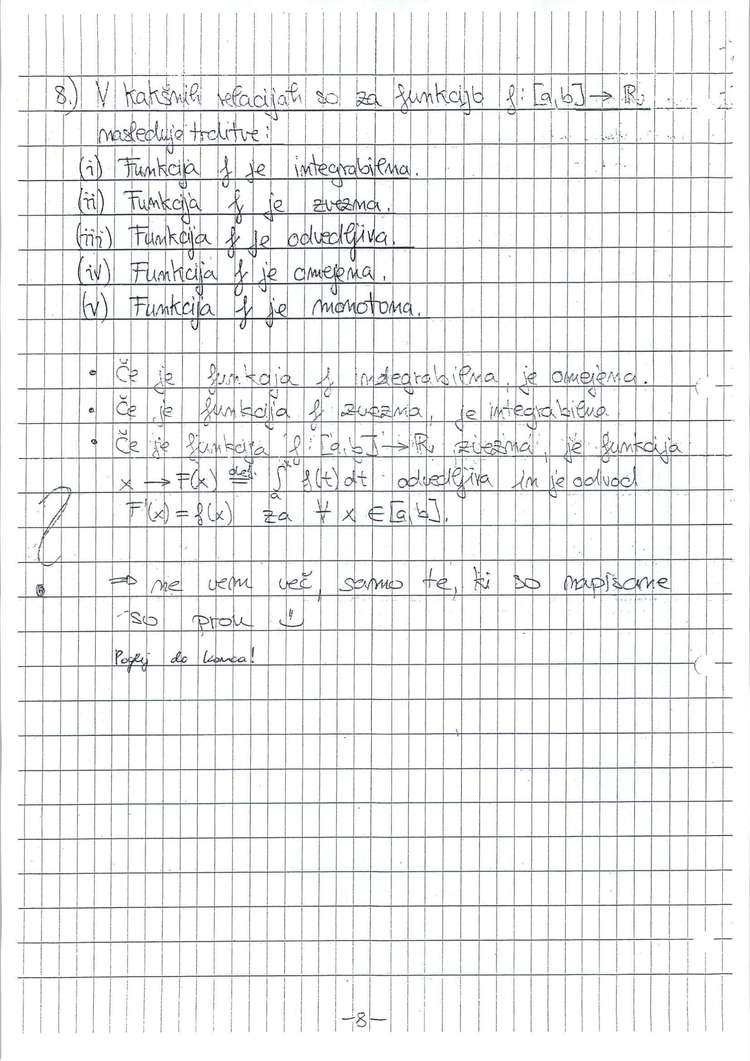 8.) V kakšnih relacijah so za funkcijo f: [a,b] → ℝ
naslednje trditve:
(i) Funkcija f je integrabilna.
(ii) Funkcija f je zvezna.
(iii) Funkcija f je odvedljiva.
(iv) Funkcija f je omejena.
(v) Funkcija f je monotona.
• Če je funkcija f integrabilna, je omejena.
• Če je funkcija f zvezna, je integrabilna
• Če je funkcija f: [a,b] → ℝ zvezna, je funkcija
x → F(x) def.= ∫ₐˣ f(t) dt odvedljiva in je odvod
F'(x) = f(x) za ∀ x ∈ [a,b].
⇒ ne vem več, samo te, ki so napisane
so prou :)
Poglej do konca!
-8-